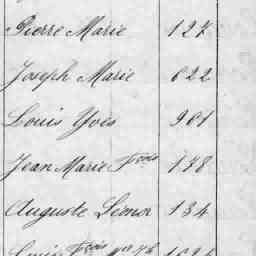 Pierre Marie 127
Joseph Marie 622
Louis Yves 901
Jean Marie Fçois 178
Auguste Lénor 134
Louis Fçois